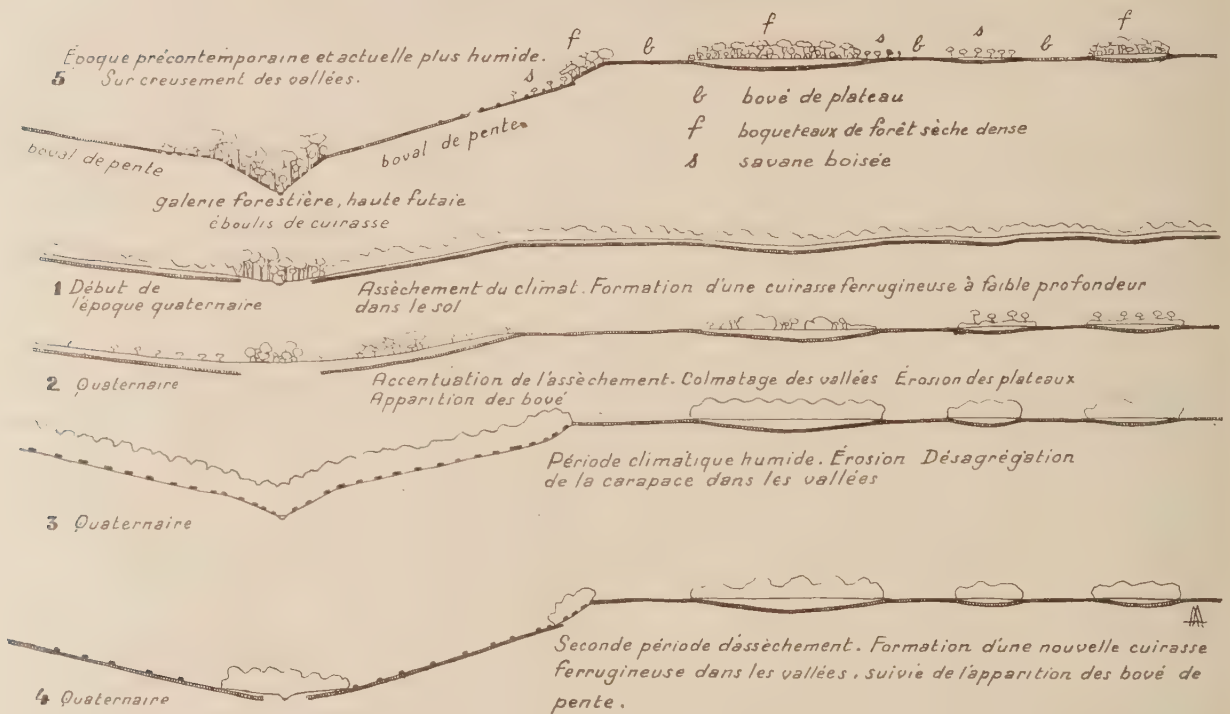 f
b
f
s
b
s
b
f
Époque précontemporaine et actuelle plus humide.
5 Sur creusement des vallées.
s
b bové de plateau
f boqueteaux de forêt sèche dense
s savane boisée
boval de pente
boval de pente
galerie forestière, haute futaie
éboulis de cuirasse
1 Début de
l'époque quaternaire
Assèchement du climat. Formation d'une cuirasse ferrugineuse à faible profondeur
dans le sol
2 Quaternaire
Accentuation de l'assèchement. Colmatage des vallées Érosion des plateaux
Apparition des bové
Période climatique humide. Érosion Désagrégation
de la carapace dans les vallées
3 Quaternaire
Seconde période d'assèchement. Formation d'une nouvelle cuirasse
ferrugineuse dans les vallées, suivie de l'apparition des bové de
pente.
4 Quaternaire